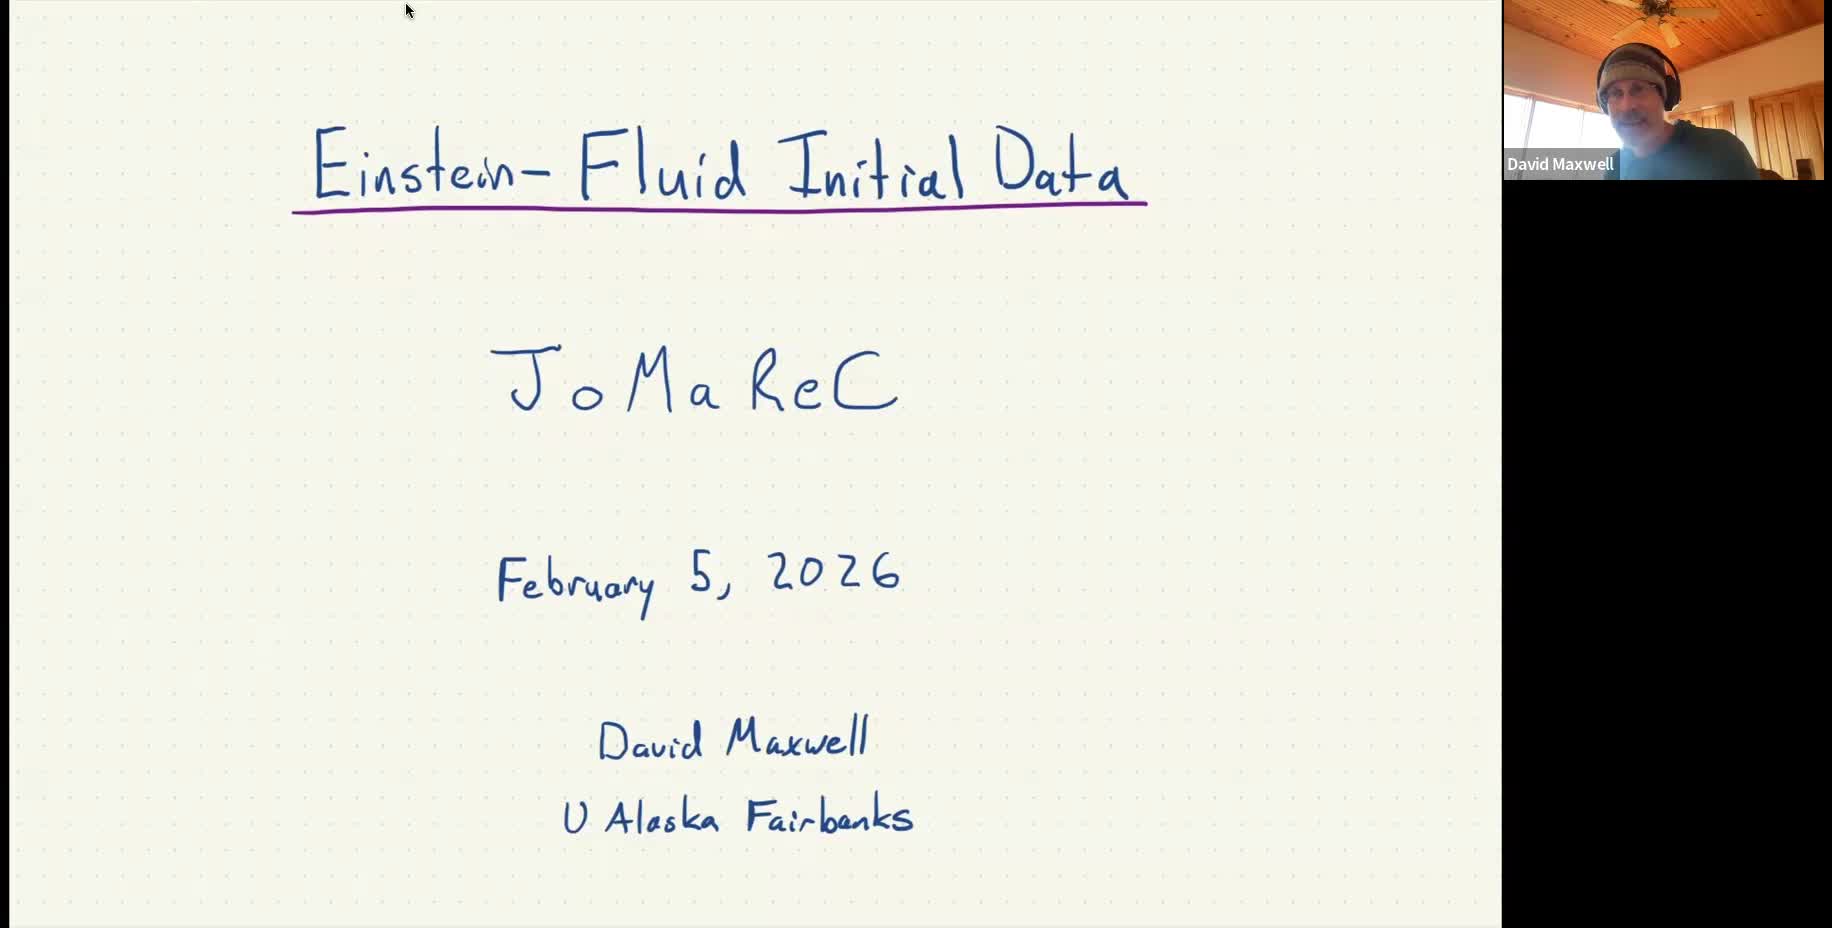 Einstein-Fluid Initial Data
JoMaReC
February 5, 2026
David Maxwell
U Alaska Fairbanks
David Maxwell